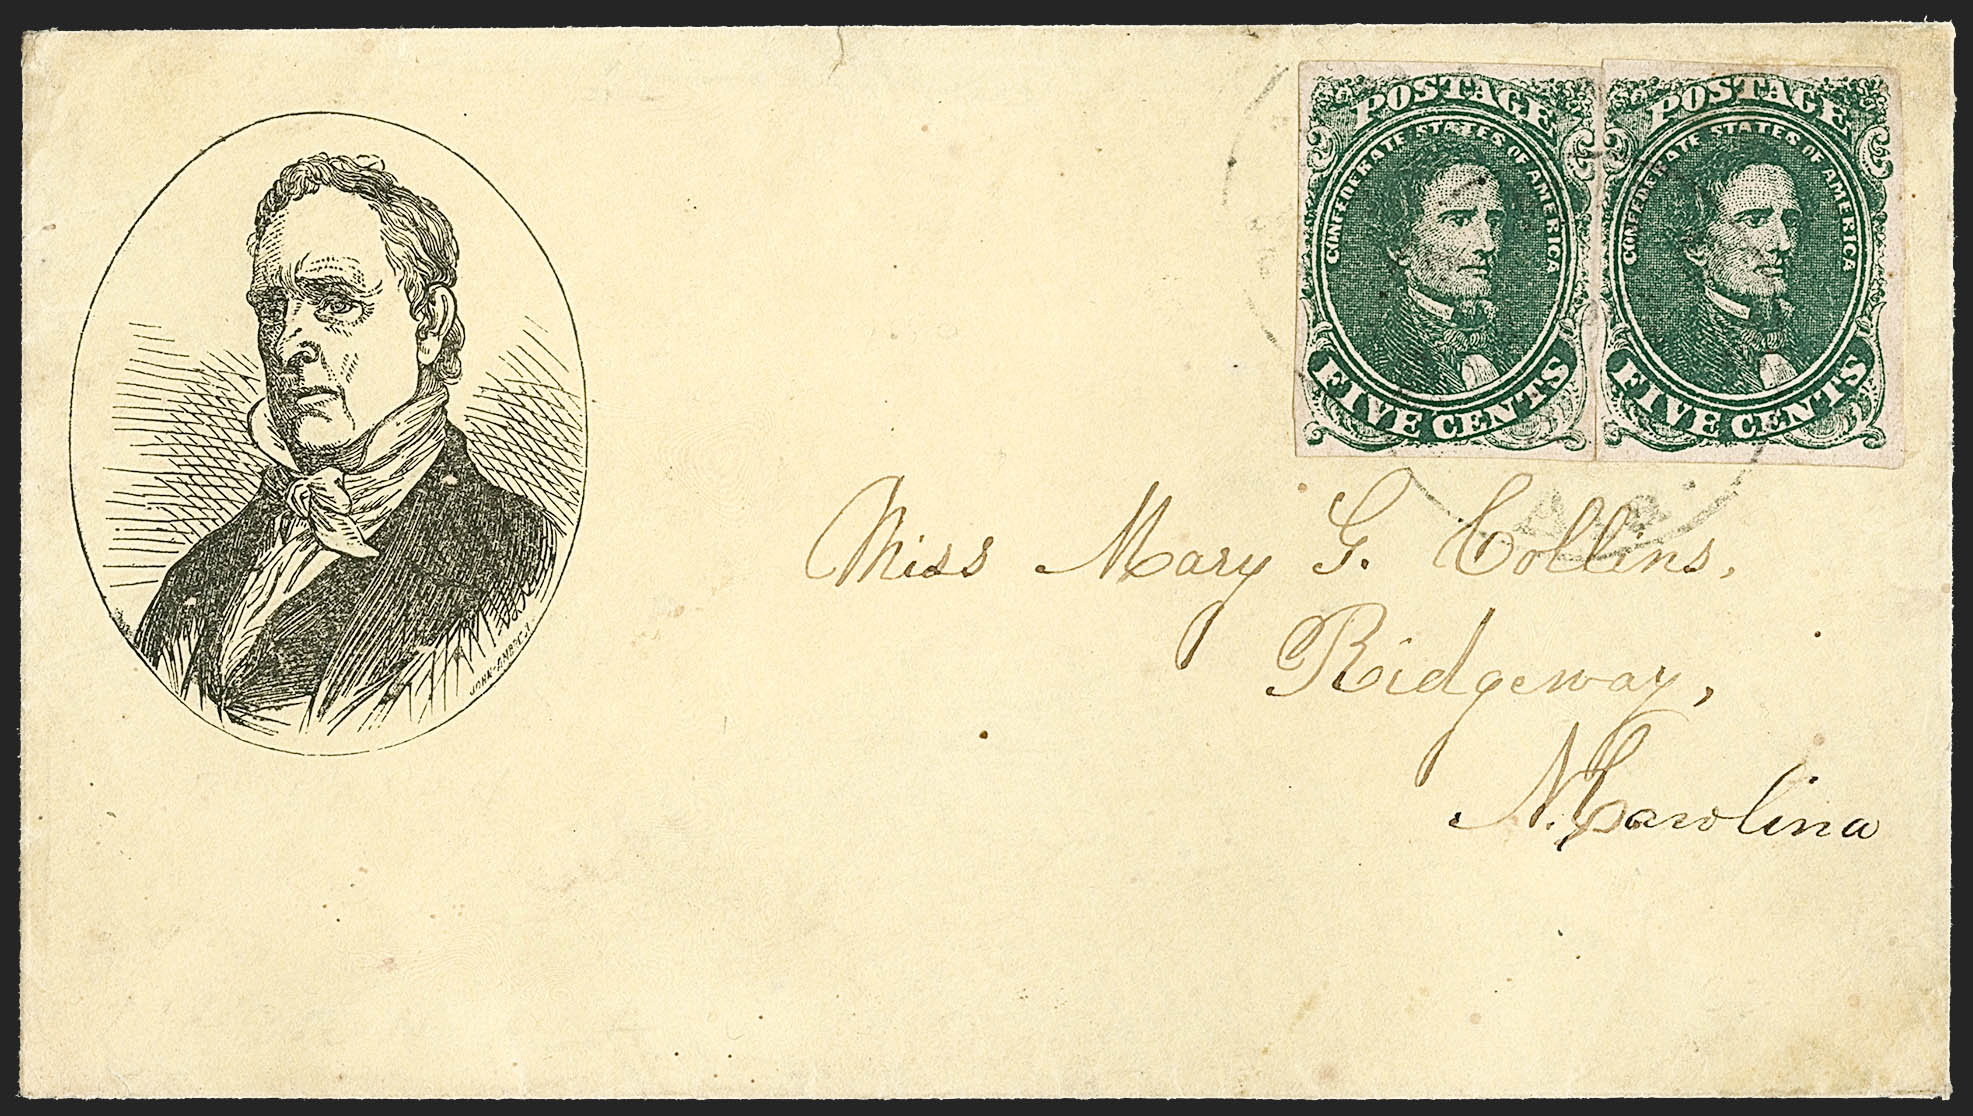 POSTAGE
CONFEDERATE STATES OF AMERICA
FIVE CENTS
POSTAGE
CONFEDERATE STATES OF AMERICA
FIVE CENTS
Miss Mary G. Collins,
Ridgeway,
N. Carolina